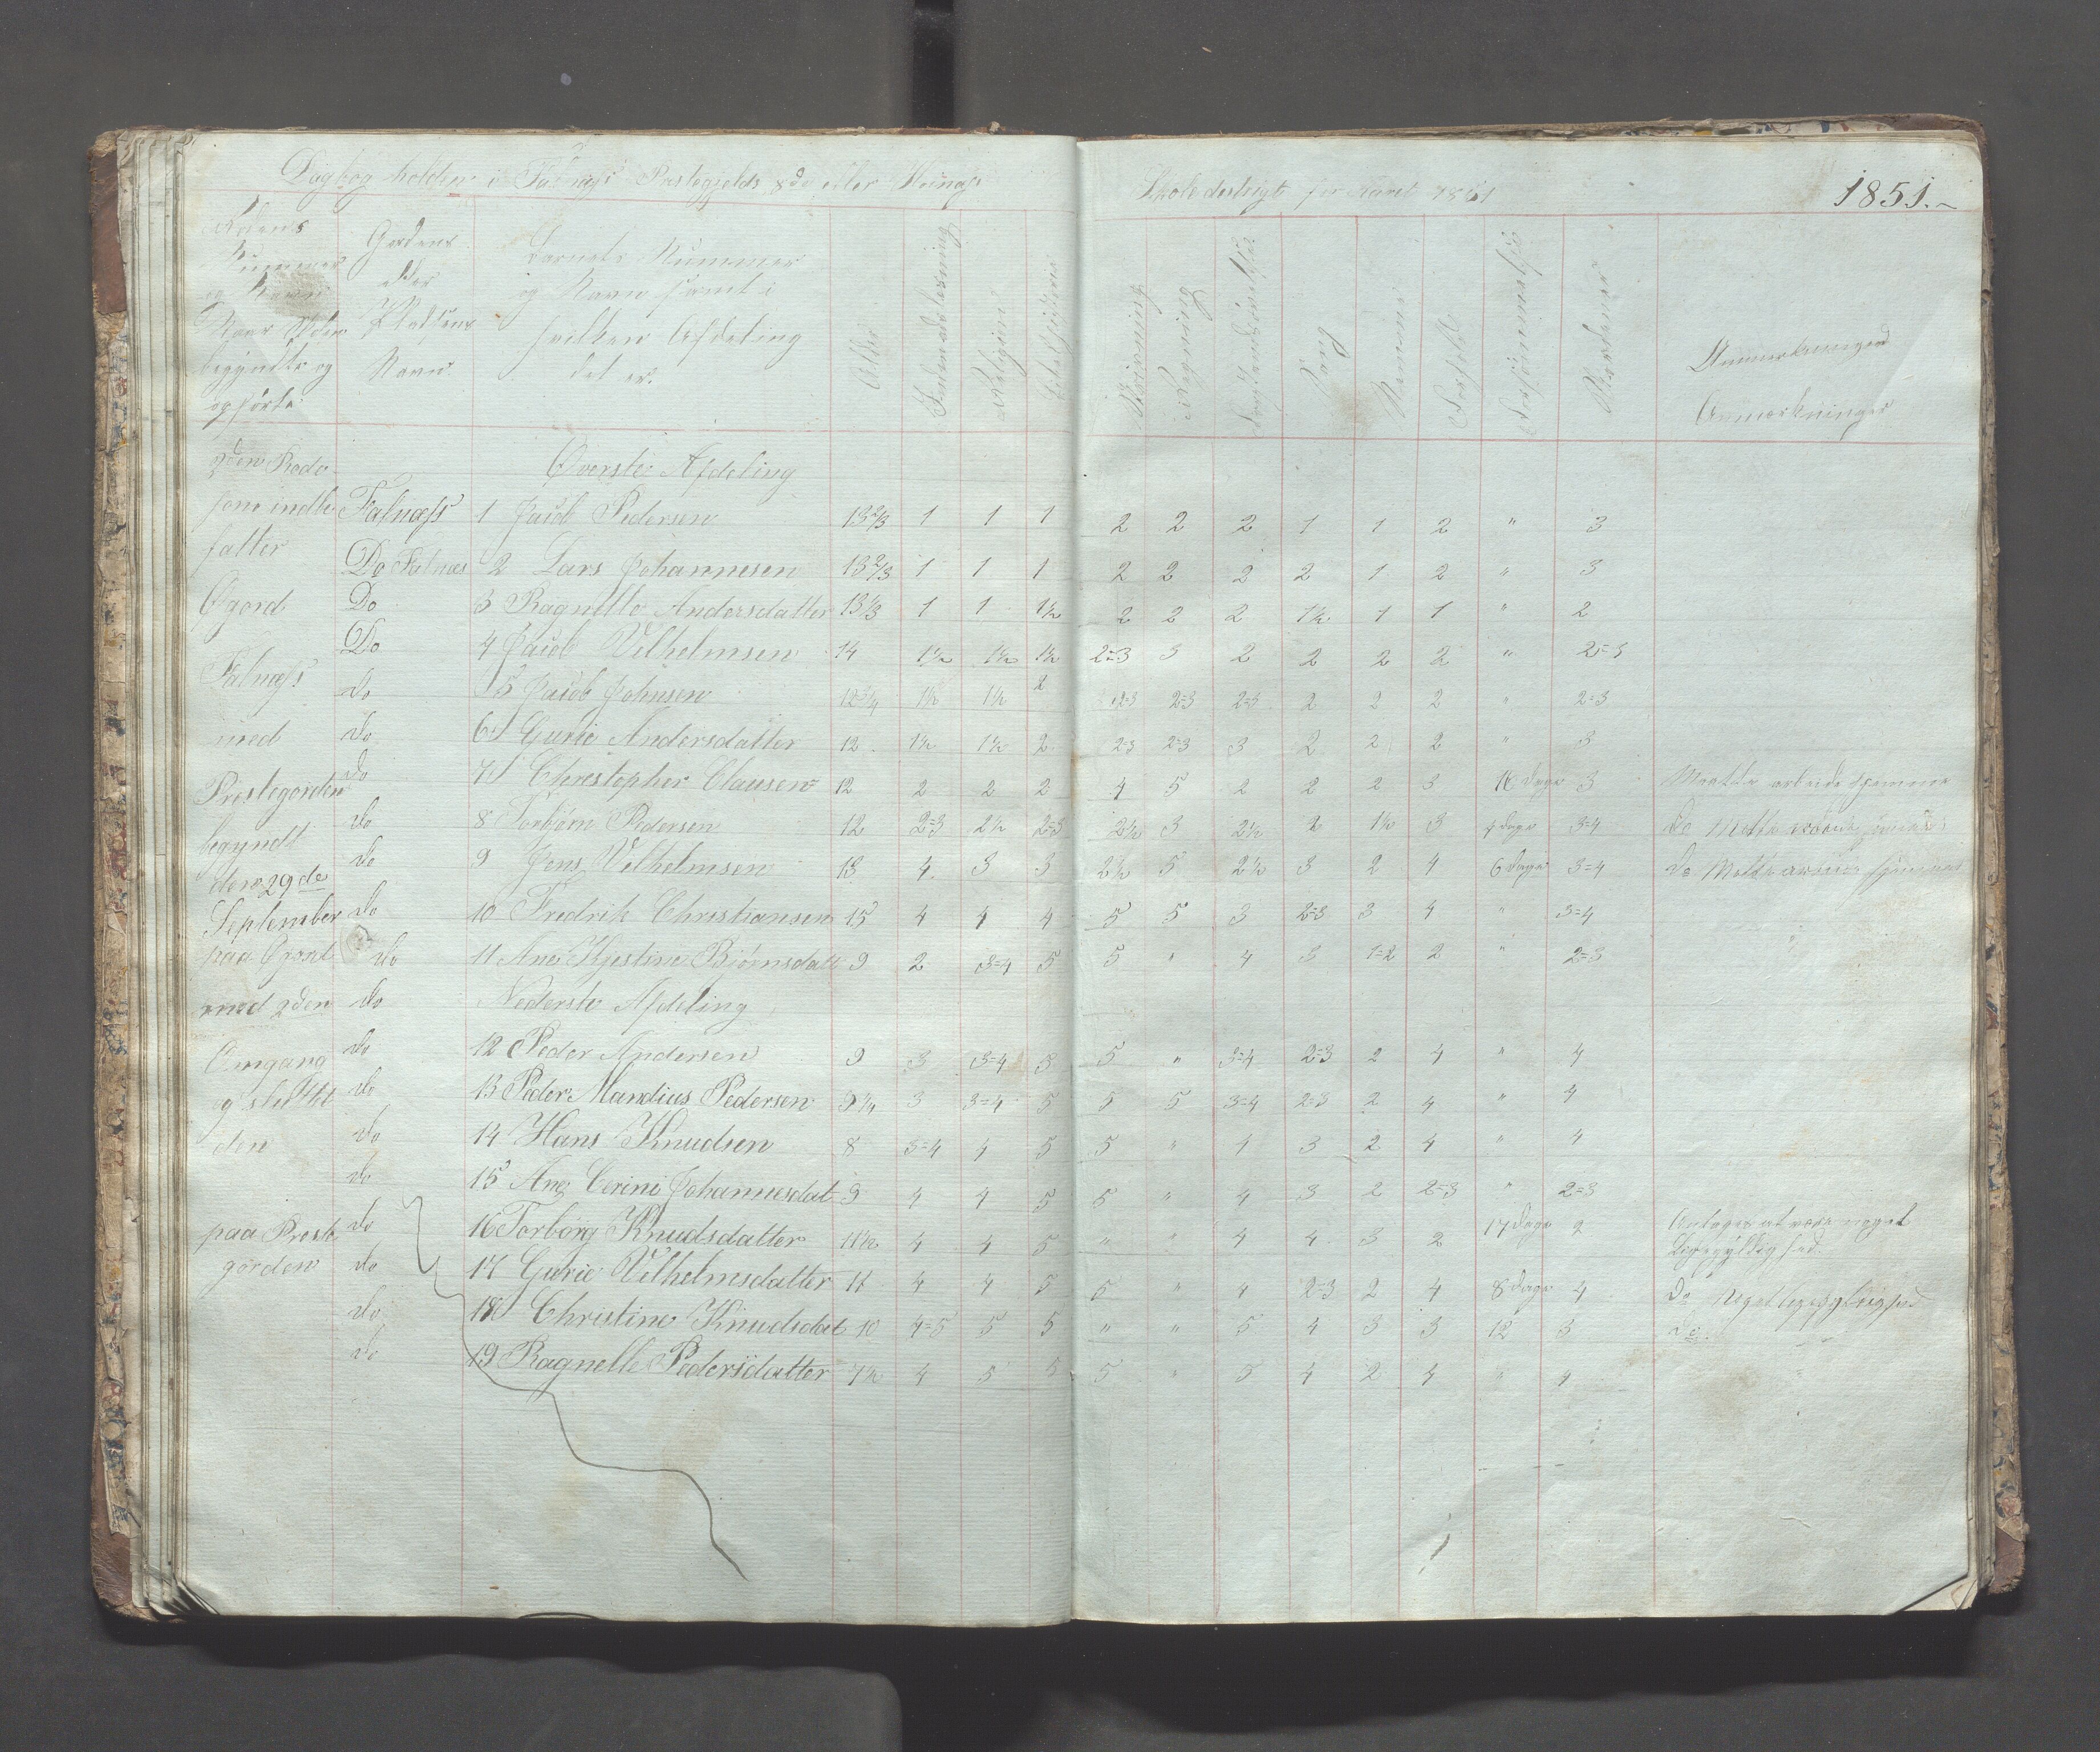 Dagbog holden i Falnæss Prestegjelds 8de eller
Skoledistrigt for Aaret 1851
1851.
Rodens
Nummer
og Navn
Naar Skolen
begyndte og
ophørte
Gordens
eller
Pladsens
Navn
Barnets Nummer
og Navn samt i
hvilken Afdeling
det er.
Alder
Indenadslæsning
Religion
Bibelhistorie
Skrivning
Regning
Forstandsøvelser
Sang
Nemme
Forhold
Forsømmelse
Anmærkninger
Anmærkninger
2den Rode
som indbe
fatter
Øgord
Falnæss
med
Prestegorden
begyndt
den 29de
September
paa
med 2den
Omgang
og sluttet
den
paa Preste
gorden
Øverste Afdeling
Falnæss 1 Jacob Pedersen 13 2/3 1 1 1 2 2 2 1 1 2 " 3
Do Falnæs 2 Lars Johannesen 13 2/3 1 1 1 2 2 2 2 1 2 " 3
Do 3 Ragnille Andersdatter 13 1/3 1 1 1½ 2 2 2 1½ 1 1 " 2
Do 4 Jacob Vilhelmsen 14 1½ 1½ 1½ 2=3 3 2 2 2 2 " 2=3
do 5 Jacob Johnsen 12 3/4 1½ 1½ 2 2=3 2=3 2=3 2 2 2 " 2=3
do 6 Gurie Andersdatter 12 1½ 1½ 2 2=3 2=3 3 2 2 2 " 3
do 7 Christopher Clausen 12 2 2 2 4 5 2 2 2 3 16 Dage 3
do 8 Torbjørn Pedersen 12 2=3 2½ 2=3 2½ 3 2½ 2 1½ 3 4 Dage 3=4
do 9 Jens Vilhelmsen 13 4 3 3 2½ 3 2½ 3 2 4 6 Dage 3=4
do 10 Fredrik Christiansen 15 4 4 4 5 5 3 2=3 3 4 " 3=4
do 11 Ane Kjestine Bjørnsdatt 9 2 3=4 5 5 " 4 3 1=2 2 " 2=3
do Nederste Afdeling
do 12 Peder Andersen 9 3 3=4 3 5 " 3=4 2=3 2 4 " 4
do 13 Peder Mandius Pedersen 9 1/4 3 3=4 5 5 5 3=4 2=3 2 4 " 4
do 14 Hans Knudsen 8 3=4 4 5 5 " 4 3 2 4 " 4
do 15 Ane Cerine Johannesdat 9 4 4 5 5 " 4 3 2 2=3 " 2=3
do 16 Torborg Knudsdatter 11½ 4 4 5 " " 4 4 3 2 17 Dage 2 Antages at være noget
Ligegyldighed.
do 17 Gurie Vilhelmsdatter 11 4 4 5 5 " 4 2=3 2 4 8 Dage 4 Do Noget
do 18 Christine Knudsdat 10 4=5 5 5 " " 5 4 3 3 12 3 do.
do 19 Ragnelle Pedersdatter 7½ 4 5 5 5 " 5 4 2 4 " 4